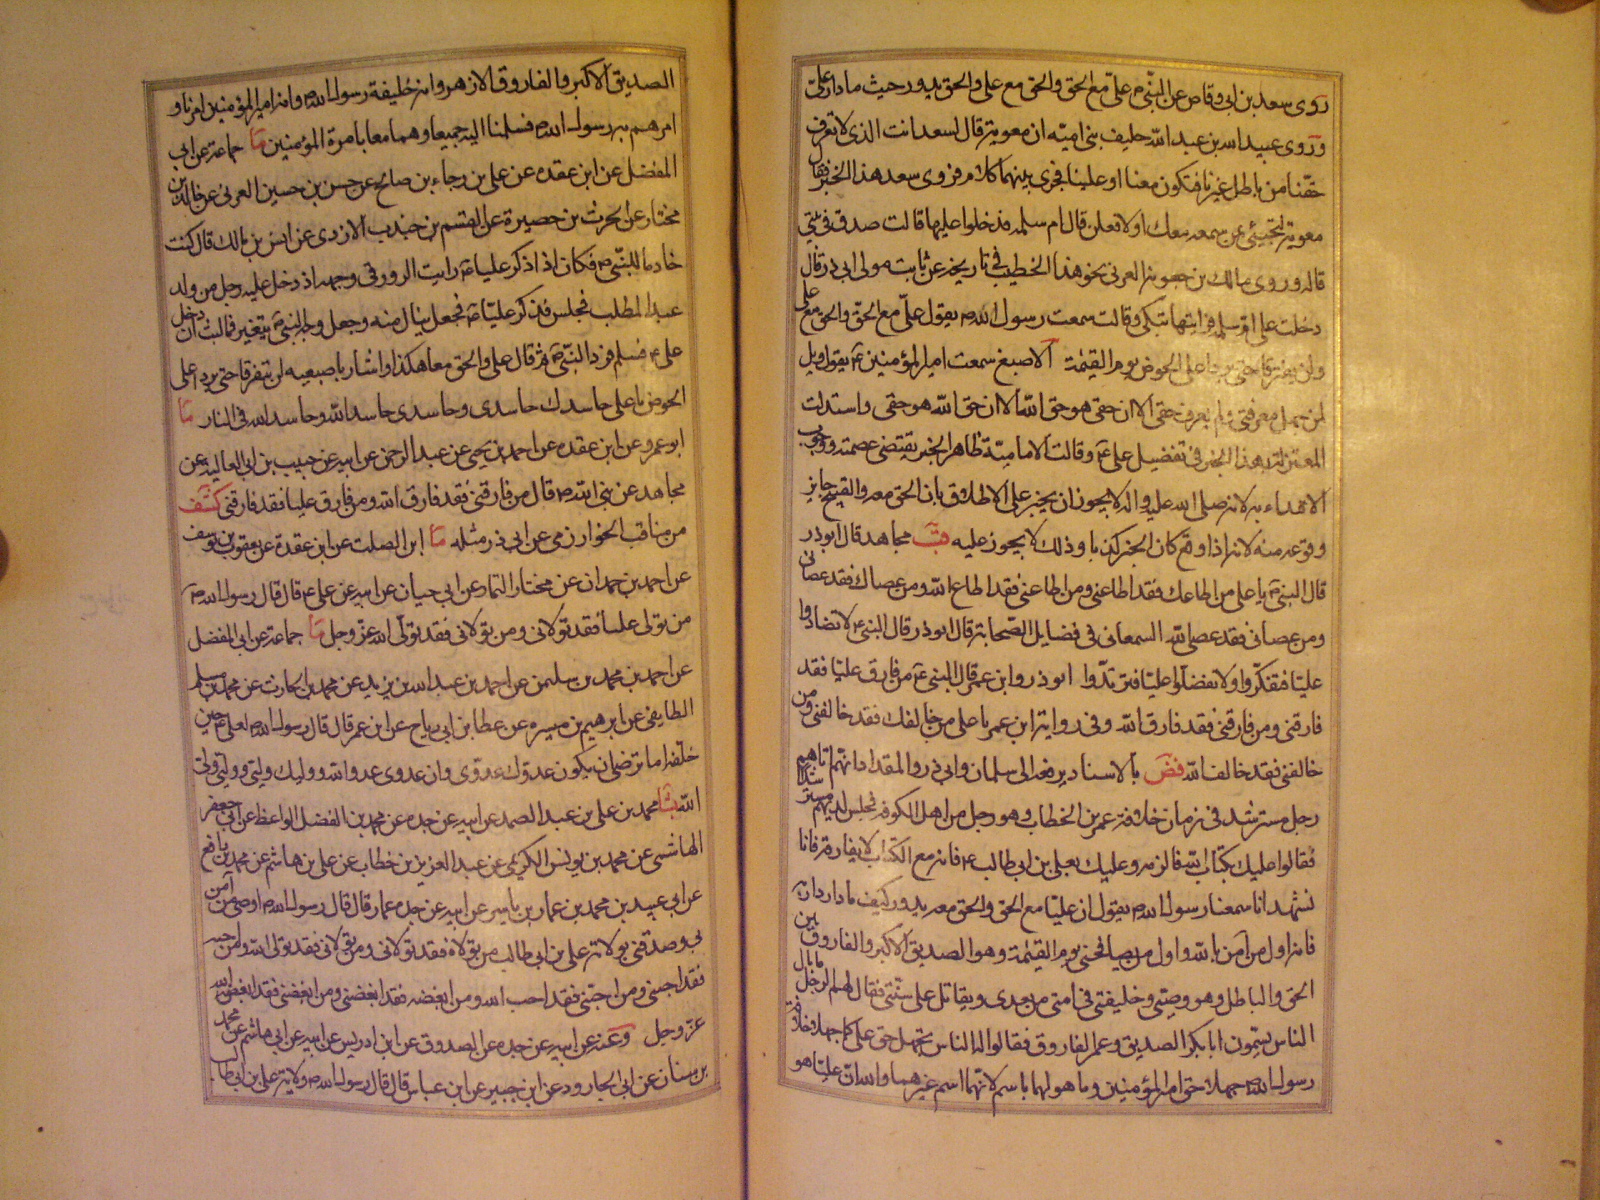 روى سعد بن ابى وقاص عن النبى ص على مع الحق والحق مع على والحق يدور حيث ما دار على
وروى عبيد الله بن عبد الله حليف بنى امية ان معوية قال لسعد انت الذى لا تعرف
حقنا من باطل غيرنا فتكون معنا او علينا فجرى بينهما كلام فروى سعد هذا الخبر فقال
معوية لتجيئنى بمن سمعه معك او لافعلن قال ام سلمة فدخلوا عليها قالت صدق فى بيتى
قاله وروى مالك بن جعونة العرنى نحو هذا الخطيب فى تاريخه عن ثابت مولى ابى ذر قال
دخلت على ام سلمة فرايتها تبكى وقالت سمعت رسول الله ص يقول على مع الحق والحق مع على
ولن يفترقا حتى يردا على الحوض يوم القيمة الاصبغ سمعت امير المؤمنين ع يقول ويل
لمن جهل معرفتى ولم يعرف حقى الا ان حقى هو حق الله الا ان حق الله هو حقى واستدلت
المعتزلة بهذا الخبر فى تفضيل على ع وقالت الامامية ظاهر الخبر يقتضى عصمته ووجوب
الاقتداء به لانه صلى الله عليه واله لا يجوز ان يخبر على الاطلاق بان الحق معه والقبيح جايز
وقوعه منه لانه اذا وقع كان الخبر كذبا وذلك لا يجوز عليه قب مجاهد قال ابو ذر
قال النبى ص يا على من اطاعك فقد اطاعنى ومن اطاعنى فقد اطاع الله ومن عصاك فقد عصانى
ومن عصانى فقد عصى الله السمعانى فى فضايل الصحابة قال ابو ذر قال النبى ص لا تضادوا
عليا فتكفروا ولا تفضلوا عليا فترتدوا ابو ذر وابن عمر قال النبى ص من فارق عليا فقد
فارقنى ومن فارقنى فقد فارق الله وفى رواية ابن عمر يا على من خالفك فقد خالفنى ومن
خالفنى فقد خالف الله فض بالاسناد يرفعه الى سلمان وابى ذر والمقداد انهم اتاهم
رجل مسترشد فى زمان خلافة عمر بن الخطاب وهو رجل من اهل الكوفة فجلس اليهم مسترشدا
فقالوا عليك بكتاب الله فالزمه وعليك بعلى بن ابى طالب ع فانه مع الكتاب لا يفارقه فانا
نشهد انا سمعنا رسول الله ص يقول ان عليا مع الحق والحق معه يدور كيف ما دار دار به
فانه اول من آمن بالله واول من يصافحنى يوم القيمة وهو الصديق الاكبر والفاروق بين
الحق والباطل وهو وصيى وخليفتى فى امتى من بعدى ويقاتل على سنتى فقال لهم الرجل ما بال
الناس يسمون ابا بكر الصديق وعمر الفاروق فقالوا له الناس تجهل حق على كما جهلا خلافة
رسول الله ص جهلا حق امير المؤمنين وما هو لهما باسم لانهما اسم غيرهما والله ان عليا هو
الصديق الاكبر والفاروق الازهر وانه خليفة رسول الله ص وانه امير المؤمنين امرنا و
امرهم به رسول الله ص فسلمنا اليه جميعا وهما معا بامرة المؤمنين ما جماعة عن ابى
المفضل عن ابن عقده عن على بن رجاء بن صالح عن حسن بن حسين العرنى عن خالد بن
مختار عن الحرث بن حصيرة عن القسم بن جندب الازدى عن انس بن مالك قال كنت
خادما للنبى ص فكان اذا ذكر عليا ع رايت السرور فى وجهه اذ دخل عليه رجل من ولد
عبد المطلب فجلس فذكر عليا ع فجعل ينال منه وجعل وجه النبى ص يتغير فما لبث ان دخل
على ع فسلم فرد النبى ص ثم قال على والحق معا هكذا واشار باصبعيه لن يتفرقا حتى يردا على
الحوض يا على حاسدك حاسدى وحاسدى حاسد الله وحاسد الله فى النار ما
ابو عمرو عن ابن عقده عن احمد بن يحيى عن عبد الرحمن عن ابيه عن حبيب بن ابى العالية عن
مجاهد عن نبى الله ص قال من فارقنى فقد فارق الله ومن فارق عليا فقد فارقنى كشف
من مناقب الخوارزمى عن ابى ذر مثله ما ابن الصلت عن ابن عقدة عن يعقوب بن يوسف
عن احمد بن حمدان عن مختار التمار عن ابى حيان عن ابيه عن على ع قال قال رسول الله ص
من تولى عليا فقد تولانى ومن تولانى فقد تولى الله عز وجل ما جماعة عن ابى المفضل
عن احمد بن محمد بن سليمن عن احمد بن عبد الله بن يزيد عن محمد بن الحارث عن محمد بن مسلم
الطايفى عن ابرهيم بن ميسره عن عطا بن ابى رباح عن ابن عمر قال قال رسول الله ص لعلى ع حين
خلفه اما ترضى ان يكون عدوك عدوى وان عدوى عدو الله ووليك وليى ووليى ولى
الله بشا محمد بن على بن عبد الصمد عن ابيه عن جده عن محمد بن الفضل الواعظ عن ابى جعفر
الهاشمى عن محمد بن يونس الكريمى عن عبد العزيز بن خطاب عن على بن هاشم عن محمد بن رافع
عن ابى عبيد بن محمد بن عمار بن ياسر عن ابيه عن جده عمار قال قال رسول الله ص اوصى من آمن
بى وصدقنى بولاية على بن ابى طالب من تولاه فقد تولانى ومن تولانى فقد تولى الله ومن احبه
فقد احبنى ومن احبنى فقد احب الله ومن ابغضه فقد ابغضنى ومن ابغضنى فقد ابغض الله
عز وجل وعنه عن ابيه عن جده عن الصدوق عن ابن ادريس عن ابيه عن ابى هاشم عن محمد
بن سنان عن ابى الجارود عن ابن جبير عن ابن عباس قال قال رسول الله ص ولاية على بن ابى طالب